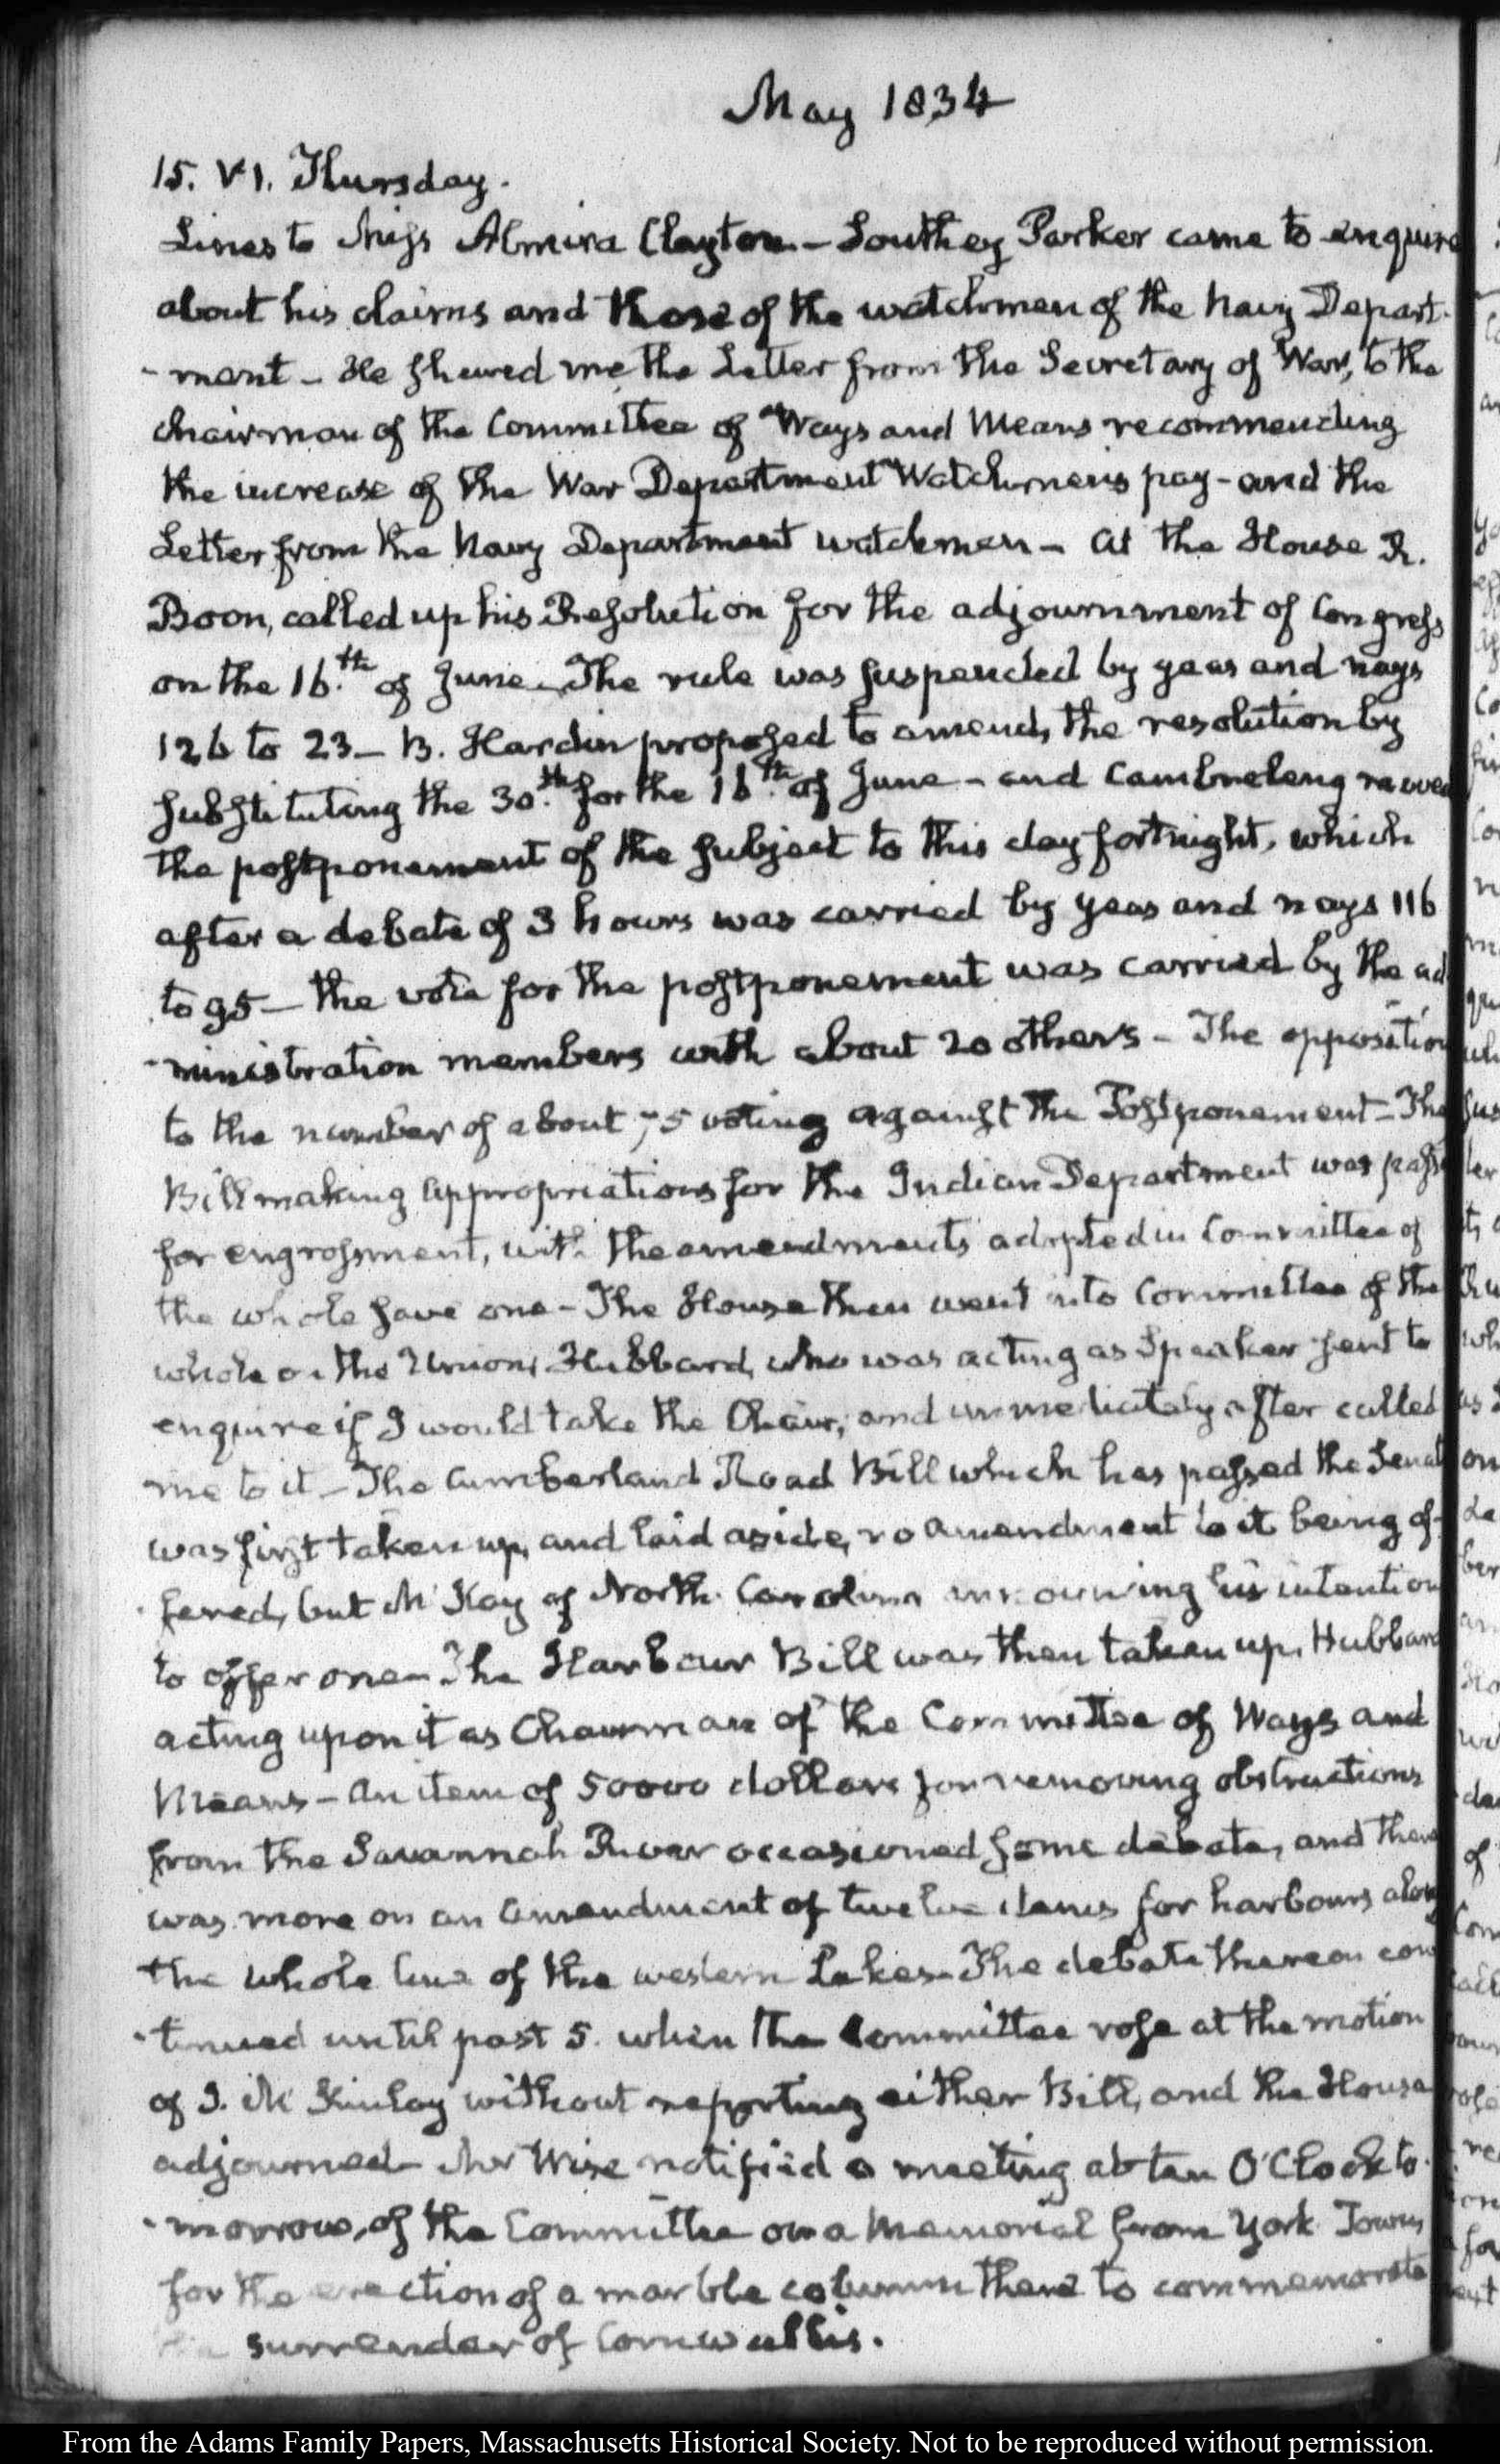 May 1834
15. VI. Thursday.
Lines to Miss Almira Clayton – Southey Parker came to enquire
about his claims and those of the watchmen of the Navy Depart-
-ment – He shewed me the Letter from the Secretary of War, to the
chairman of the Committee of Ways and Means recommending
the increase of the War Department Watchmen's pay – and the
Letter from the Navy Department watchmen – At the House R.
Boon, called up his Resolution for the adjournment of Congress
on the 16.th of June – The rule was suspended by yeas and nays
126 to 23 – B. Hardin proposed to amend, the resolution by
substituting the 30.th for the 16.th of June – and Cambreleng moved
the postponement of the subject to this day fortnight, which
after a debate of 3 hours was carried by yeas and nays 116
to 95 – the vote for the postponement was carried by the ad
-ministration members with about 20 others – The opposition
to the number of about 75 voting against the Postponement – The
Bill making appropriations for the Indian Department was
for engrossment, with the amendments adopted in Committee of
the whole save one – The House then went into Committee of the
whole on the Union, Hubbard, who was acting as Speaker sent to
enquire if I would take the Chair, and immediately after called
me to it – The Cumberland Road Bill which has passed the Senate
was first taken up, and laid aside, no amendment to it being of-
-fered, but McKay of North Carolina his intention
to offer one – The Harbour Bill was then taken up, Hubbard
acting upon it as Chairman of the Committee of Ways and
Means – An item of 50000 dollars for removing obstructions
from the Savannah River occasioned some debate, and there
was more on an amendment of twelve items for harbours along
the whole line of the western Lakes – The debate thereon con
-tinued until past 5. when the Committee rose at the motion
of J. McKinlay without reporting either Bill, and the House
adjourned – Mr Wise notified a meeting at ten O'Clock to-
-morrow, of the Committee on a Memorial from York Town,
for the erection of a marble column there to commemorate
the surrender of Cornwallis.
From the Adams Family Papers, Massachusetts Historical Society. Not to be reproduced without permission.